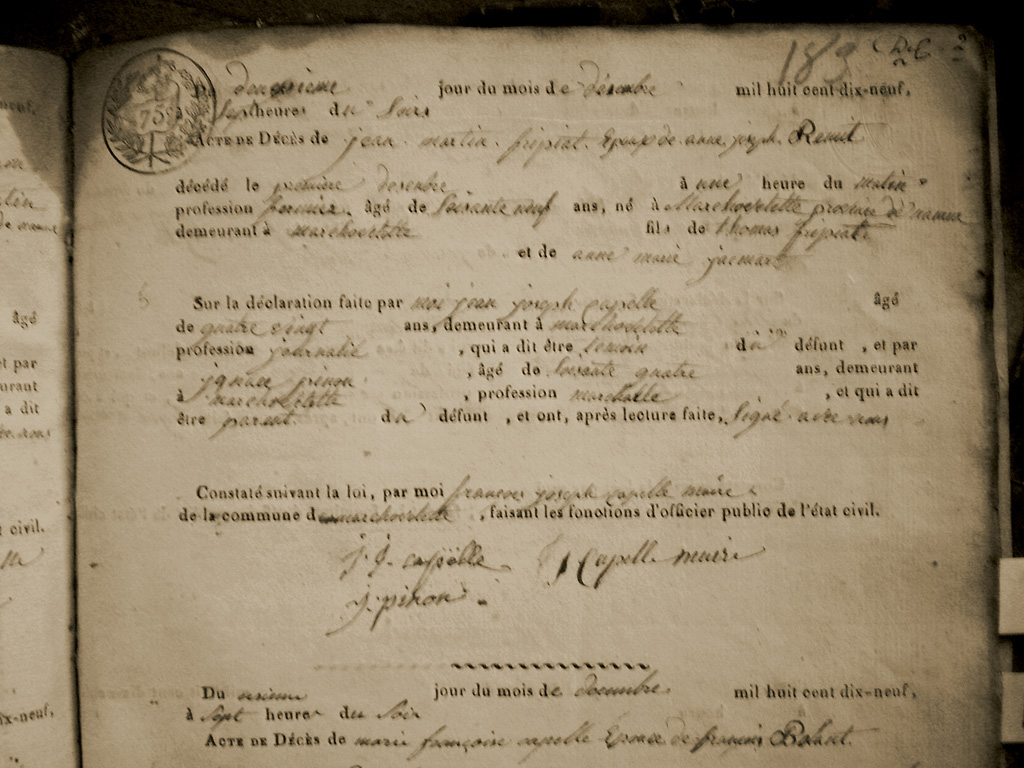 1819
75
Du deuxsieme jour du mois de désembre mil huit cent dix-neuf,
à Sept heures du Soirs
Acte de Décès de jean martin fiéptat Epoux de anne joseph Remit
décédé le premiere desembre à une heure du matin
profession fermier, âgé de Soisante neuf ans, né à Marchovelette province de namur
demeurant à marchovelette fils de thomas fiéptat
et de anne marie jacmart
Sur la déclaration faite par moi jean joseph capelle âgé
de quatre vingt ans, demeurant à marchovelette
profession journalie , qui a dit être temoin du défunt , et par
ignace pinon , âgé de Soisante quatre ans, demeurant
à marchovelette , profession marchalle , et qui a dit
être parent du défunt , et ont, après lecture faite, Signé avec nous
Constaté suivant la loi, par moi francois joseph capelle maire
de la commune de marchovelette , faisant les fonctions d'officier public de l'état civil.
j. j. capëlle Capelle maire
j. pinon
Du jour du mois de decembre mil huit cent dix-neuf,
à Sept heures du Soir
Acte de Décès de marie françoise capelle Epouse de françois Bohaut
âgé
et par
urant
a dit
t civil.
ix-neuf,